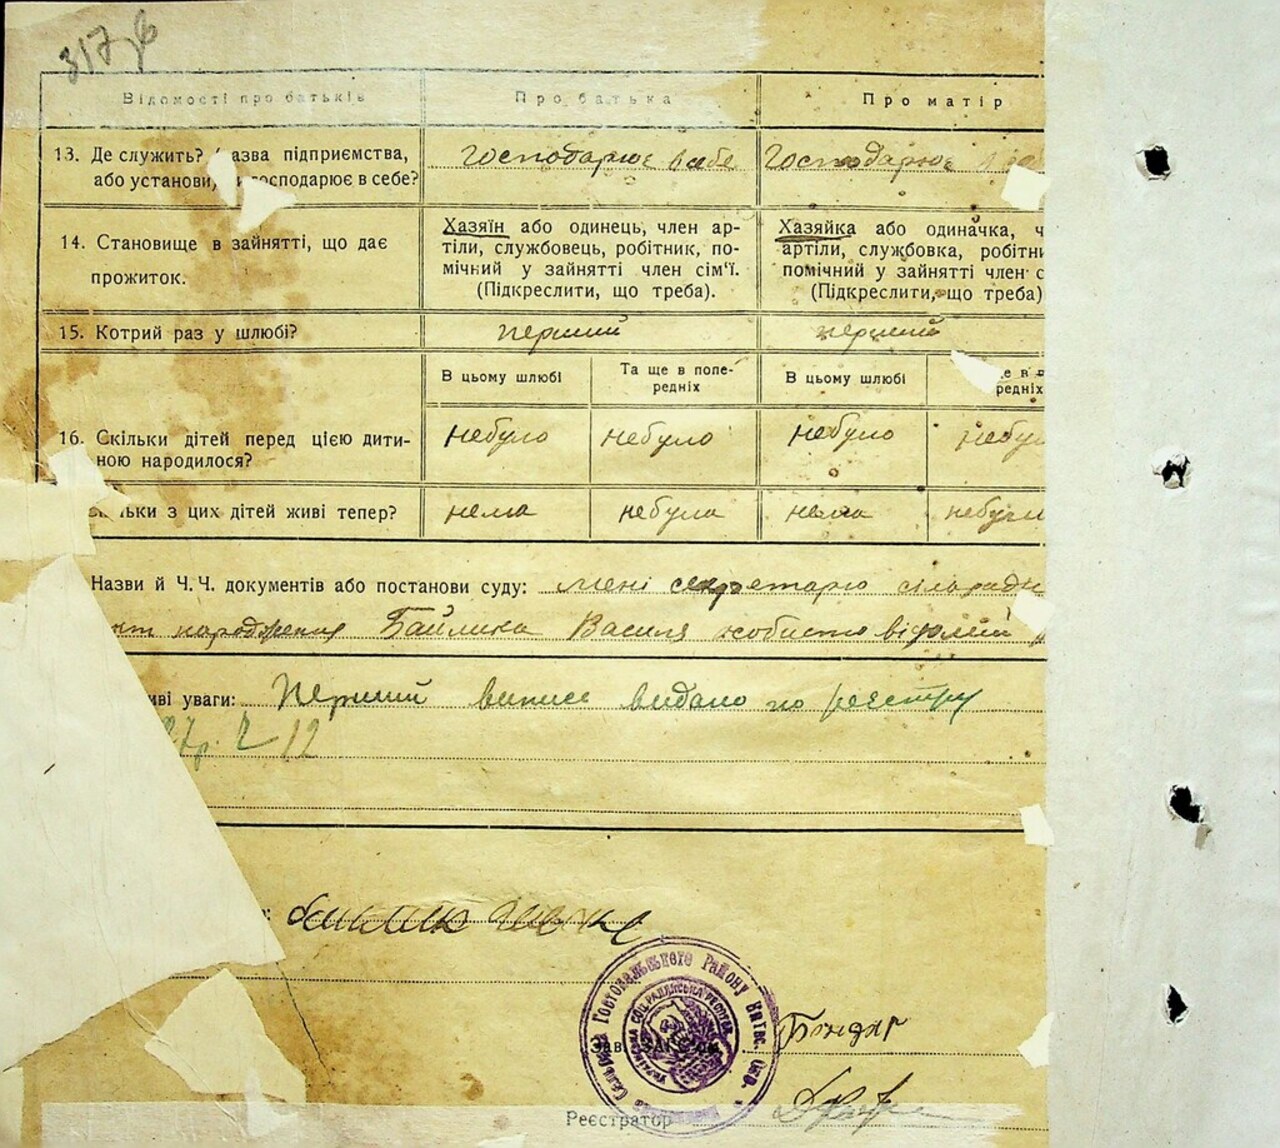 317
Відомості про батьків Про батька Про матір
13. Де служить? азва підприємства, господарює в себе Господарює
або установи, господарює в себе?
14. Становище в зайнятті, що дає
прожиток.
Хазяїн або одинець, член ар-
тіли, службовець, робітник, по-
мічний у зайнятті член сім'ї.
(Підкреслити, що треба).
Хазяйка або одиначка, ч
артіли, службовка, робітни
помічний у зайнятті член с
(Підкреслити, що треба)
15. Котрий раз у шлюбі? перший перший
В цьому шлюбі Та ще в попе- В цьому шлюбі е в п
редніх редніх
16. Скільки дітей перед цією дити- небуло небуло небуло небул
ною народилося?
ільки з цих дітей живі тепер? нема небула нема небули
Назви й Ч.Ч. документів або постанови суду: мені секретарю сільради
акт народження Байлика Василя особисто
иві уваги: Перший випис видано по реєстру
27р. 2 12
Гостомельського Району Київс. Окр.
УКРАЇНСЬКА СОЦ. РАДЯНСЬКА РЕСПУБ.
Зав. ЗАГС'ом Бондар
Реєстратор